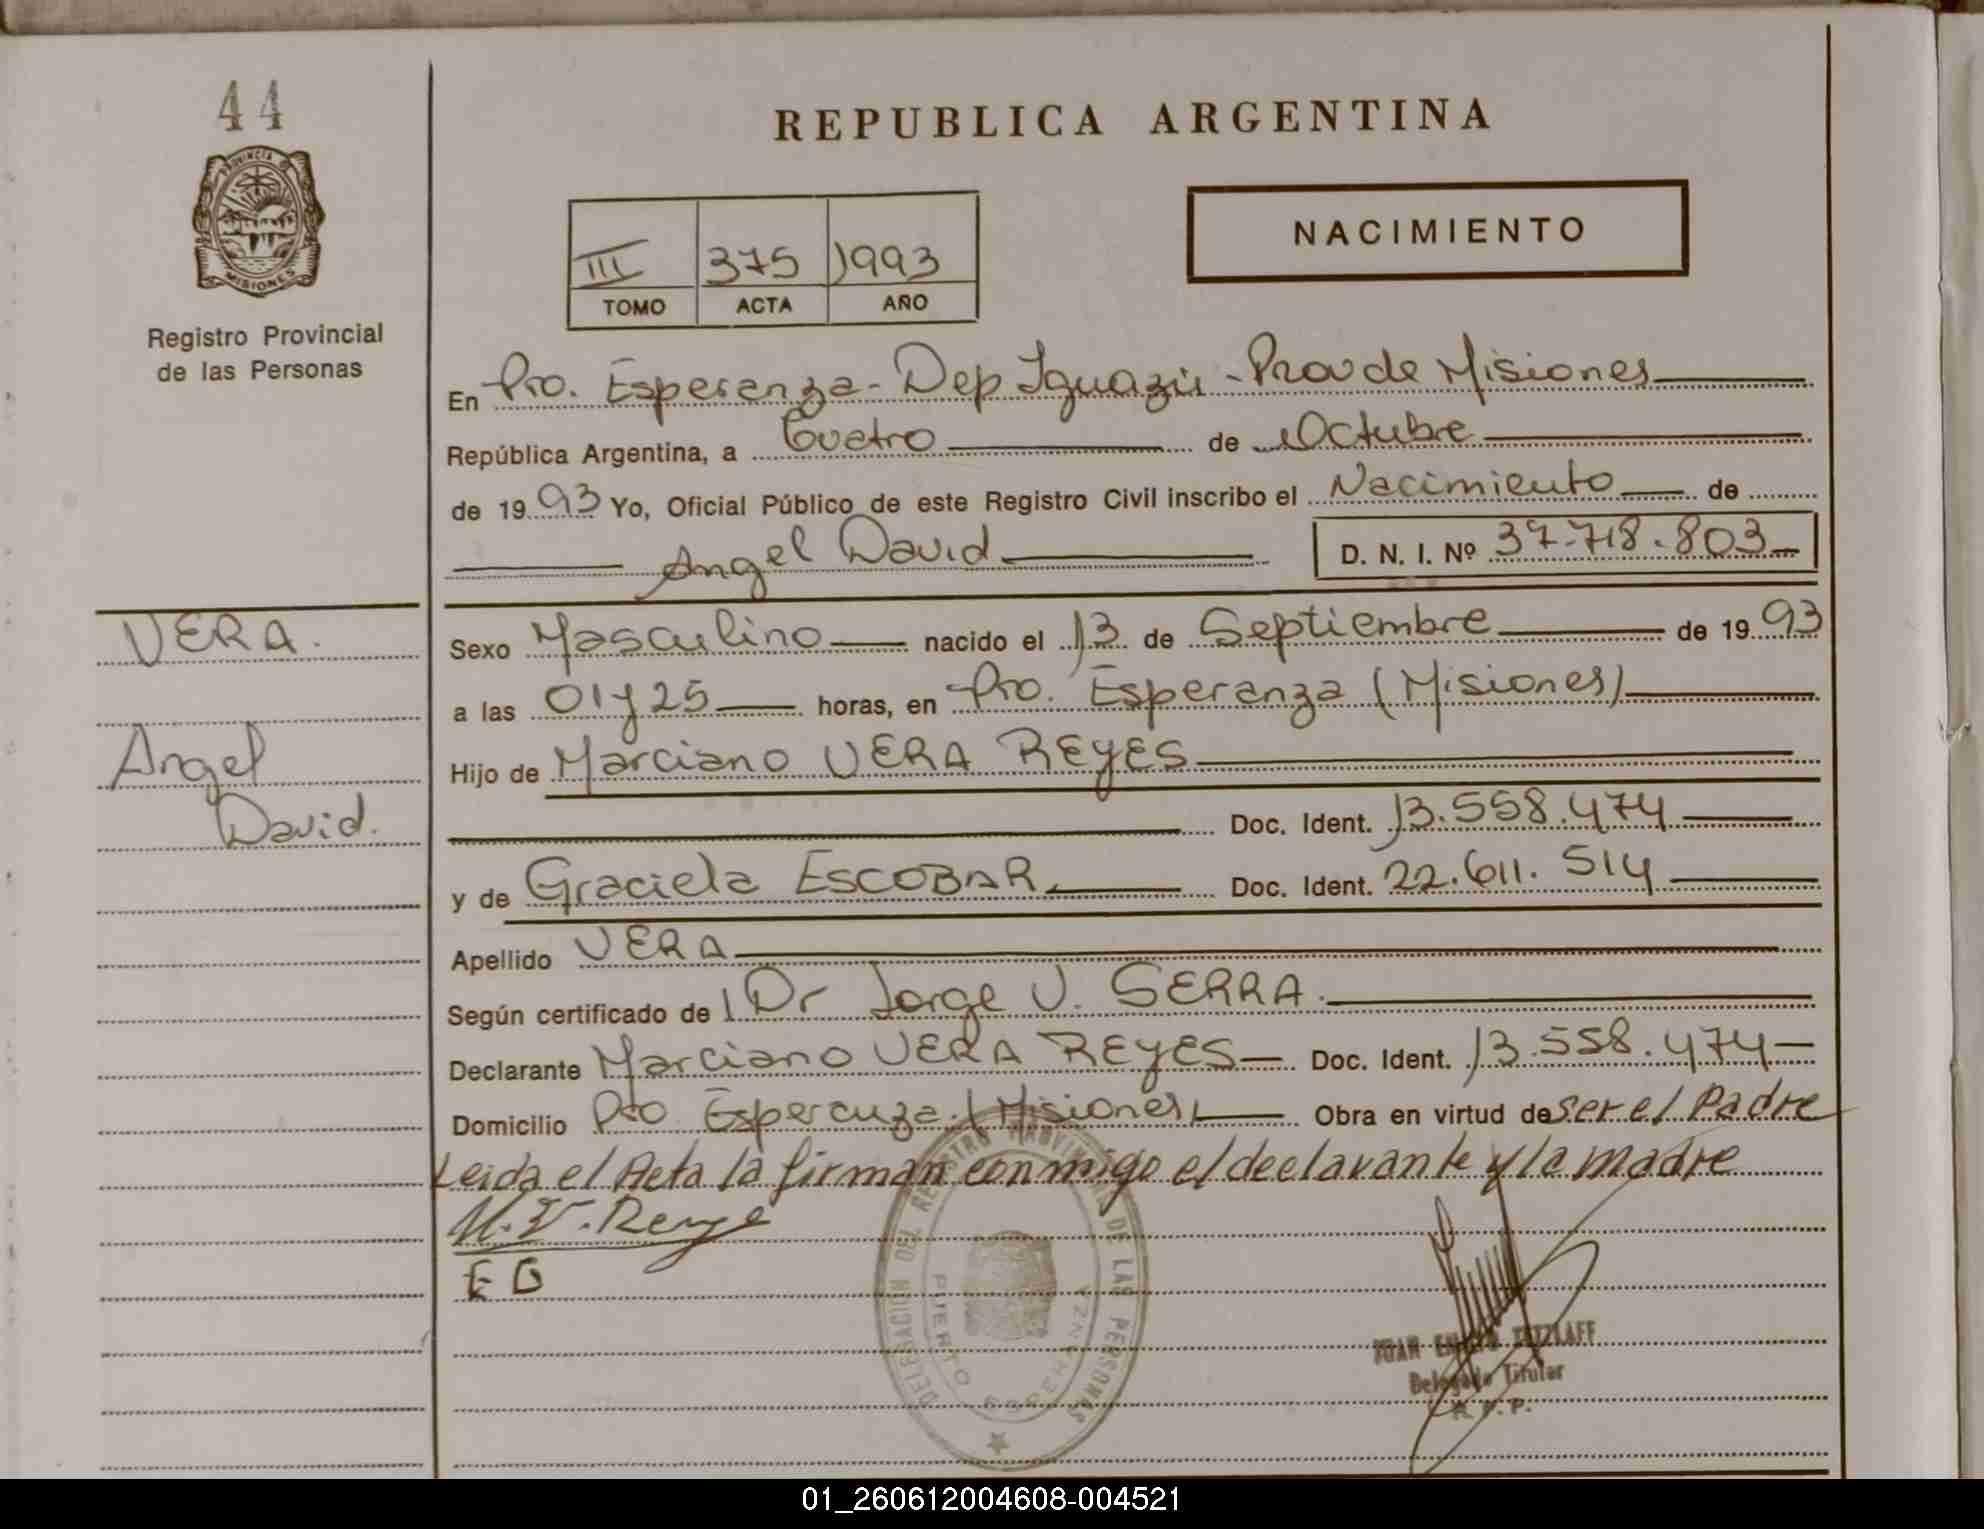 44
PROVINCIA DE
MISIONES
Registro Provincial
de las Personas
REPUBLICA ARGENTINA
III 375 1993
TOMO ACTA AÑO
NACIMIENTO
En Pto. Esperanza - Dep Iguazú - Prov de Misiones
República Argentina, a Cuatro de Octubre
de 1993 Yo, Oficial Público de este Registro Civil inscribo el Nacimiento de
Angel David D. N. I. Nº 37.718.803
VERA.
Angel
David.
Sexo Masculino nacido el 13 de Septiembre de 1993
a las 01 y 25 horas, en Pto. Esperanza (Misiones)
Hijo de Marciano VERA REYES
Doc. Ident. 13.558.474
y de Graciela ESCOBAR Doc. Ident. 22.611.514
Apellido VERA
Según certificado de Dr Jorge V. SERRA.
Declarante Marciano VERA REYES Doc. Ident. 13.558.474
Domicilio Pto Esperanza (Misiones) Obra en virtud de ser el Padre
Leida el Acta la firman conmigo el declarante y la madre
E G
DELEGACION DEL REGISTRO PROVINCIAL DE LAS PERSONAS
PUERTO ESPERANZA
JUAN TETZLAFF
Delegado Titular
R. P. P.
01_260612004608-004521